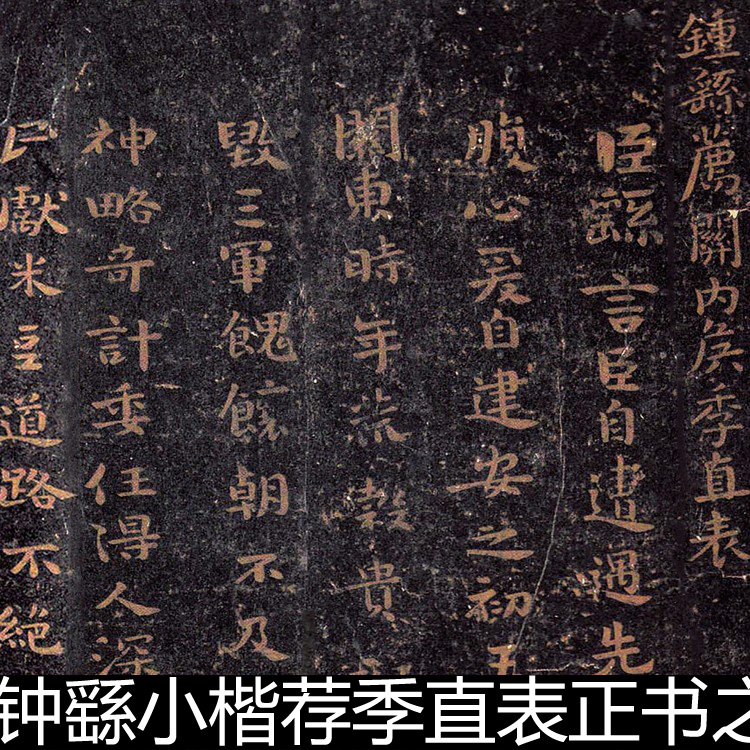 鍾繇薦關內侯季直表
臣繇言臣自遭遇先
腹心爰自建安之初
關東時年荒穀貴
毀三軍餽饟朝不及
神略奇計委任得人深
民獻米豆道路不絕
钟繇小楷荐季直表正书之